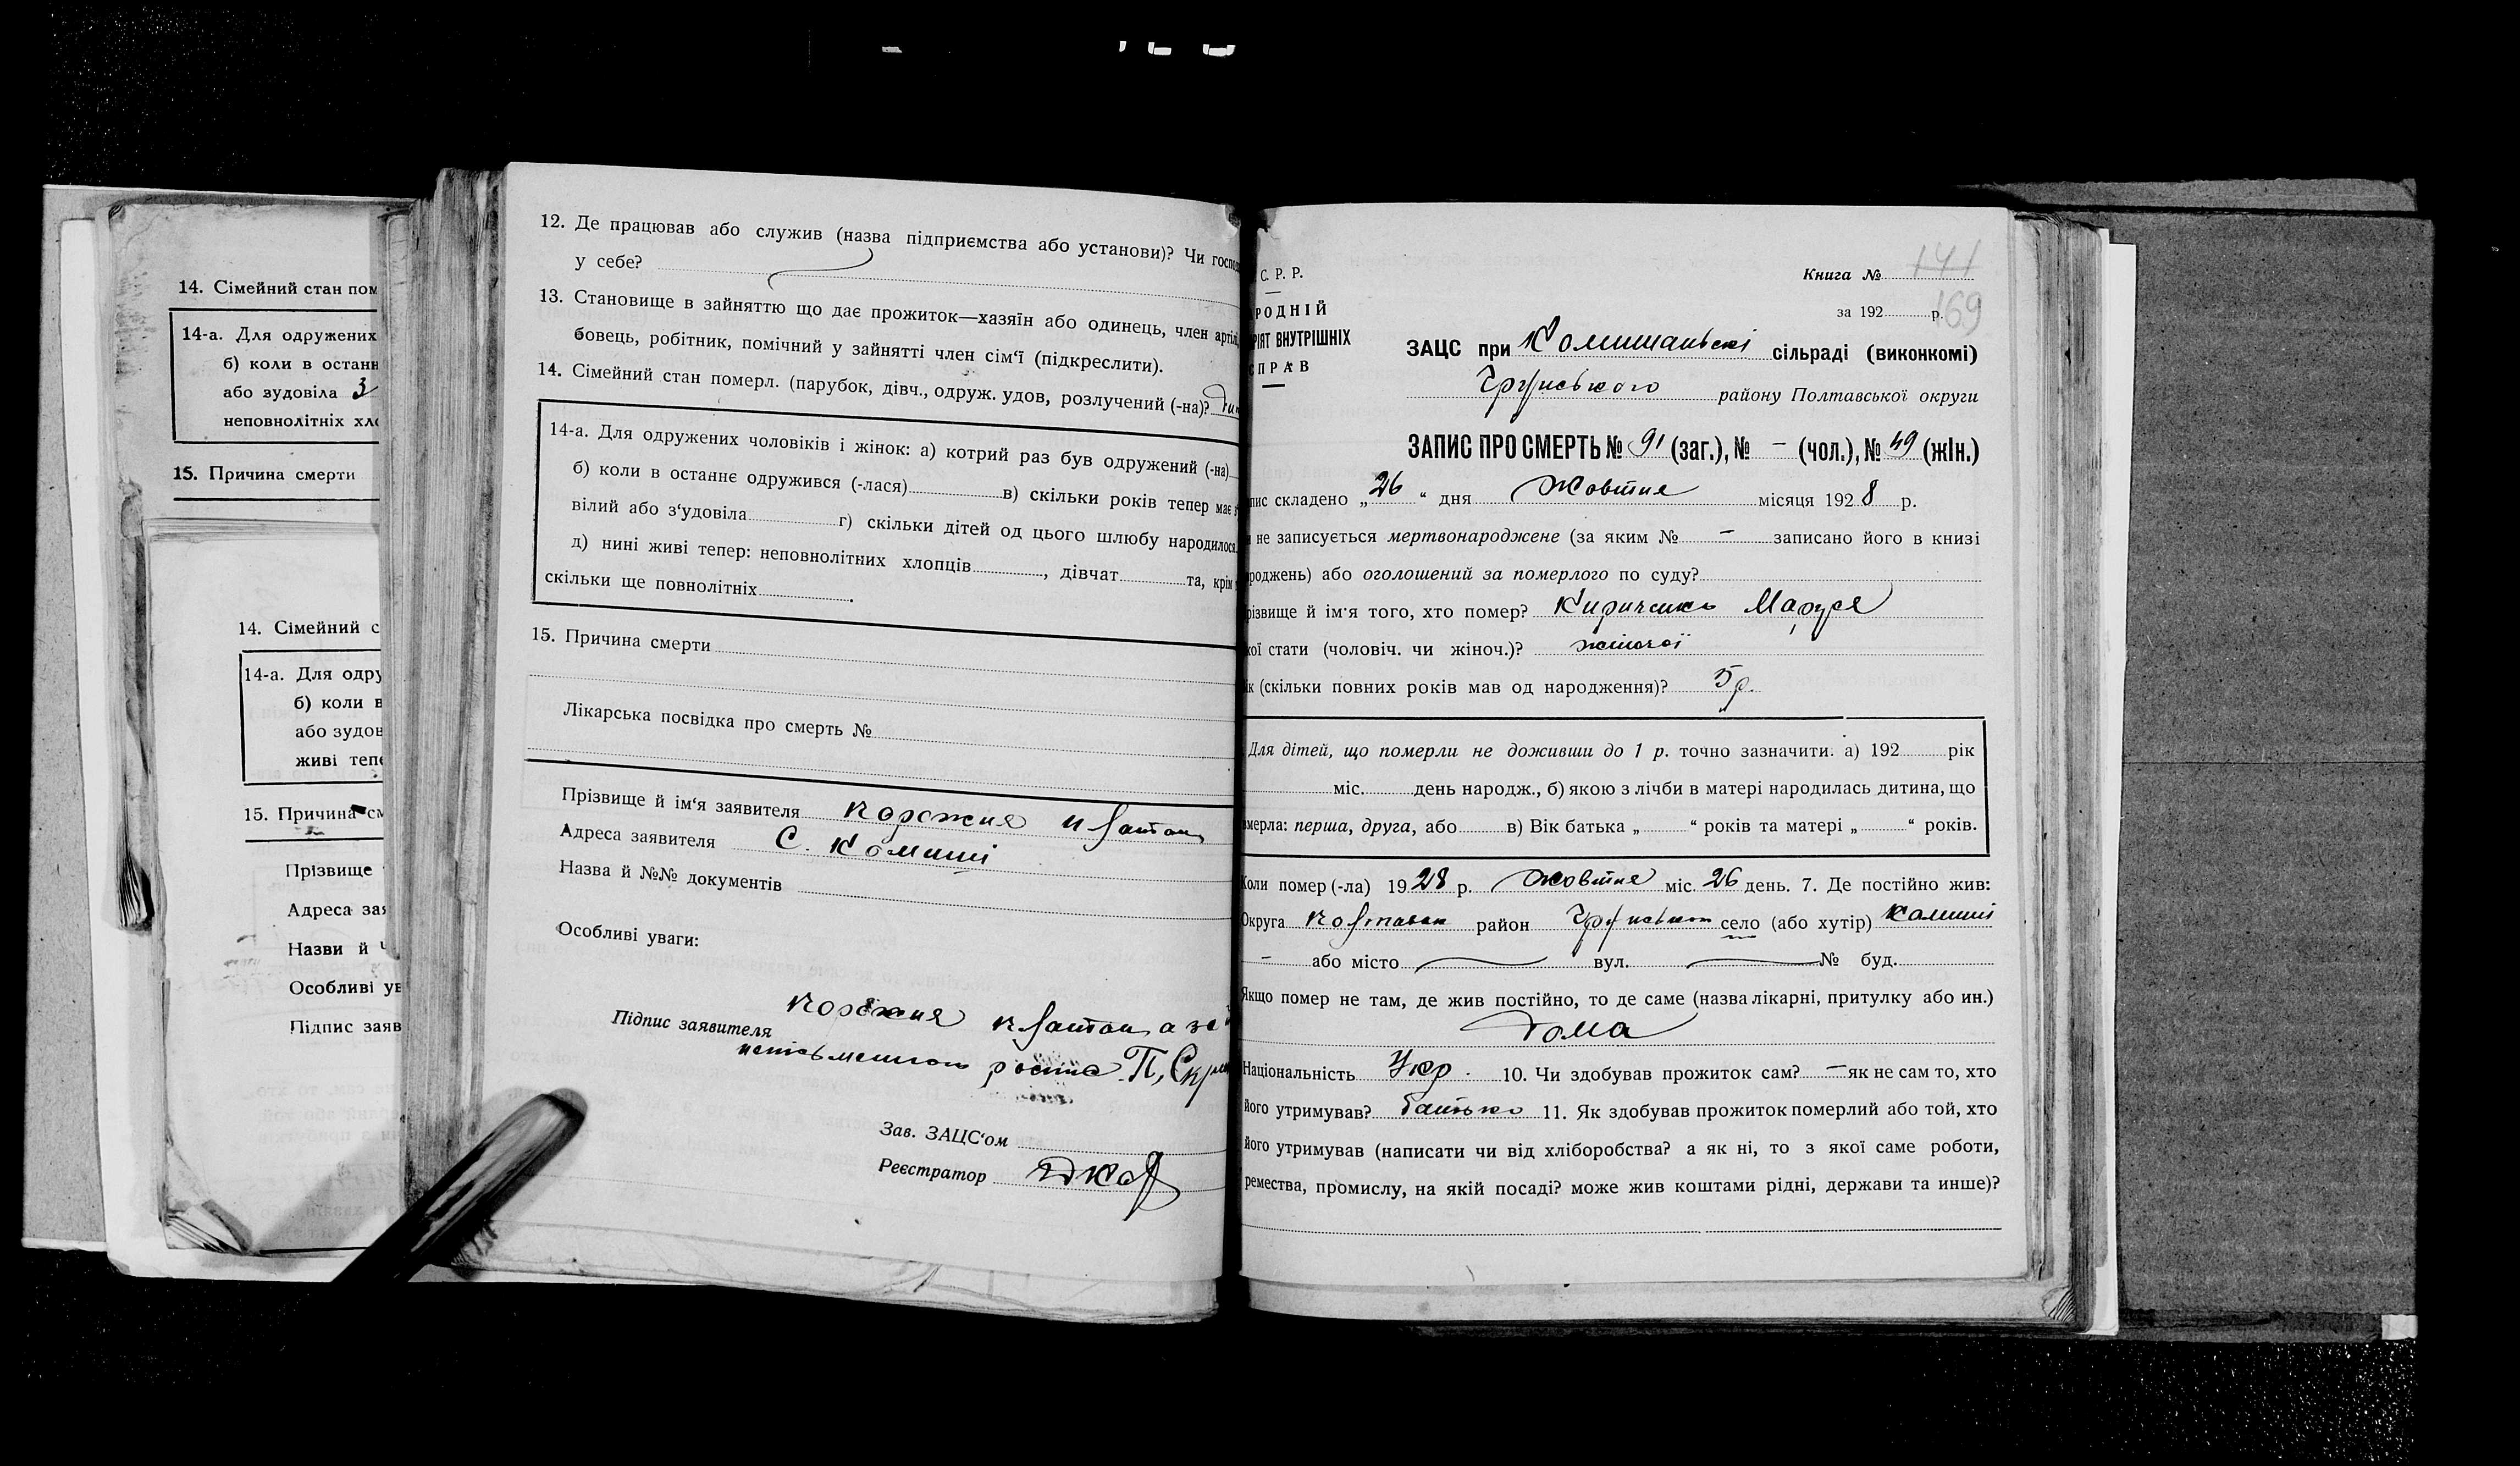 14. Сімейний стан пом
14-а. Для одружених
б) коли в останн
або зудовіла 3
неповнолітніх хло
15. Причина смерти
14. Сімейний с
14-а. Для одру
б) коли в
або зудов
живі тепе
15. Причина см
Прізвище
Адреса зая
Назви й
Особливі ув
Підпис заяв
12. Де працював або служив (назва підприємства або установи)? Чи господ
у себе?
13. Становище в зайняттю що дає прожиток—хазяїн або одинець, член артілі,
бовець, робітник, помічний у зайнятті член сім‘ї (підкреслити).
14. Сімейний стан померл. (парубок, дівч., одруж. удов, розлучений (-на)?
14-а. Для одружених чоловіків і жінок: а) котрий раз був одружений (-на)
б) коли в останнє одружився (-лася) в) скільки років тепер має з
вілий або з‘удовіла г) скільки дітей од цього шлюбу народилося
д) нині живі тепер: неповнолітних хлопців, дівчат та, крім
скільки ще повнолітніх.
15. Причина смерти
Лікарська посвідка про смерть №
Прізвище й ім‘я заявителя
Адреса заявителя С. Комиші
Назва й №№ документів
Особливі уваги:
Підпис заявителя
Зав. ЗАЦС‘ом
Реєстратор
С. Р. Р.
РОДНІЙ
РІЯТ ВНУТРІШНІХ
СПРАВ
Книга № 141
169
за 192 р.
ЗАЦС при Комишанські сільраді (виконкомі)
Грунського району Полтавської округи
ЗАПИС ПРО СМЕРТЬ № 91 (заг.), № – (чол.), № 49 (жін.)
пис складено „26“ дня Жовтня місяця 1928 р.
не записується мертвонароджене (за яким № – записано його в книзі
роджень) або оголошений за померлого по суду?
різвище й ім‘я того, хто помер? Кириченко Маруся
кої стати (чоловіч. чи жіноч.)? жіночої
ік (скільки повних років мав од народження)? 5 р.
Для дітей, що померли не доживши до 1 р. точно зазначити. а) 192 рік
міс. день народж., б) якою з лічби в матері народилась дитина, що
мерла: перша, друга, або в) Вік батька „ “ років та матері „ “ років.
Коли помер (-ла) 1928 р. Жовтня міс. 26 день. 7. Де постійно жив:
Округа Полтавськ район Грунськом село (або хутір) Комиші
– або місто вул. № буд.
Якщо помер не там, де жив постійно, то де саме (назва лікарні, притулку або ин.)
дома
Національність Укр. 10. Чи здобував прожиток сам? – як не сам то, хто
його утримував? батько 11. Як здобував прожиток померлий або той, хто
його утримував (написати чи від хліборобства? а як ні, то з якої саме роботи,
ремества, промислу, на якій посаді? може жив коштами рідні, держави та инше)?